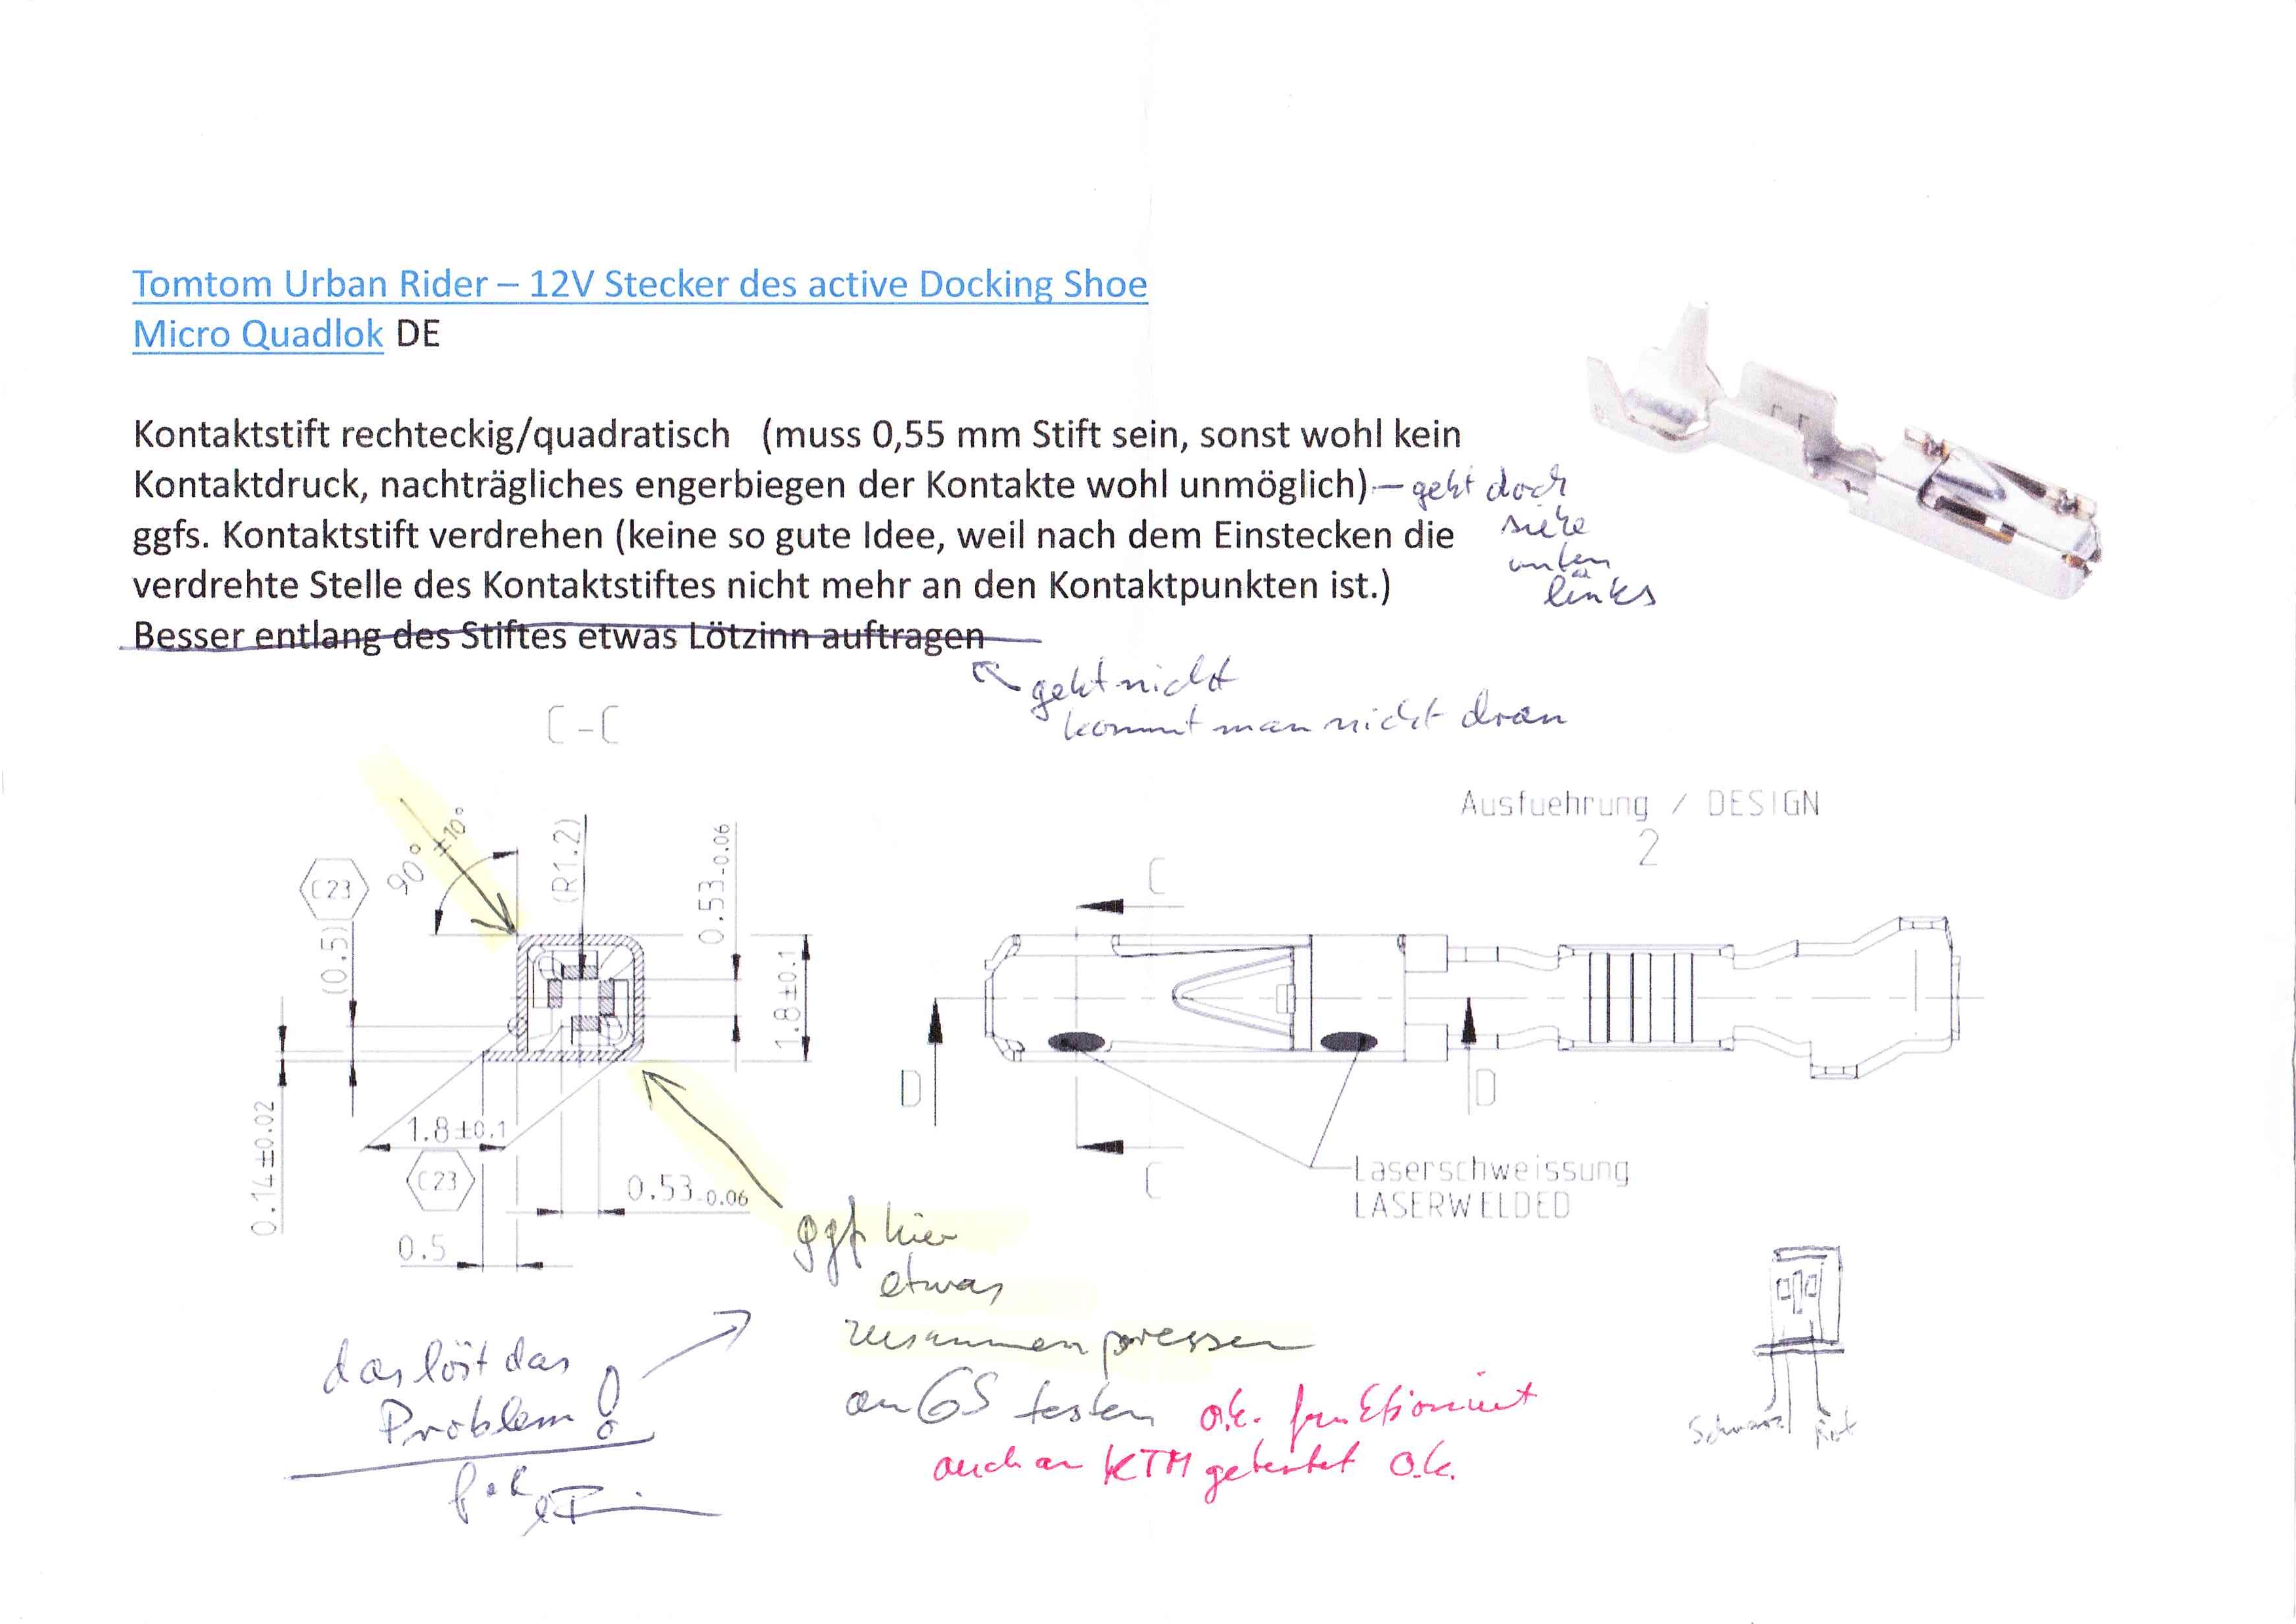 Tomtom Urban Rider – 12V Stecker des active Docking Shoe
Micro Quadlok DE
Kontaktstift rechteckig/quadratisch (muss 0,55 mm Stift sein, sonst wohl kein
Kontaktdruck, nachträgliches engerbiegen der Kontakte wohl unmöglich) — geht doch
siehe
unten
links
ggfs. Kontaktstift verdrehen (keine so gute Idee, weil nach dem Einstecken die
verdrehte Stelle des Kontaktstiftes nicht mehr an den Kontaktpunkten ist.)
Besser entlang des Stiftes etwas Lötzinn auftragen
geht nicht
kommt man nicht dran
C-C
90° ±10°
(R1.2)
0.53-0.06
C23
(0.5)
1.8±0.1
0.14±0.02
1.8±0.1
C23
0.53-0.06
0.5
Ausfuehrung / DESIGN
2
C
D
D
C
Laserschweissung
LASERWELDED
ggf hier
etwas
zusammenpressen
an GS testen o.k. funktioniert
auch an KTM getestet o.k.
das löst das
Problem!
Schwarz Rot